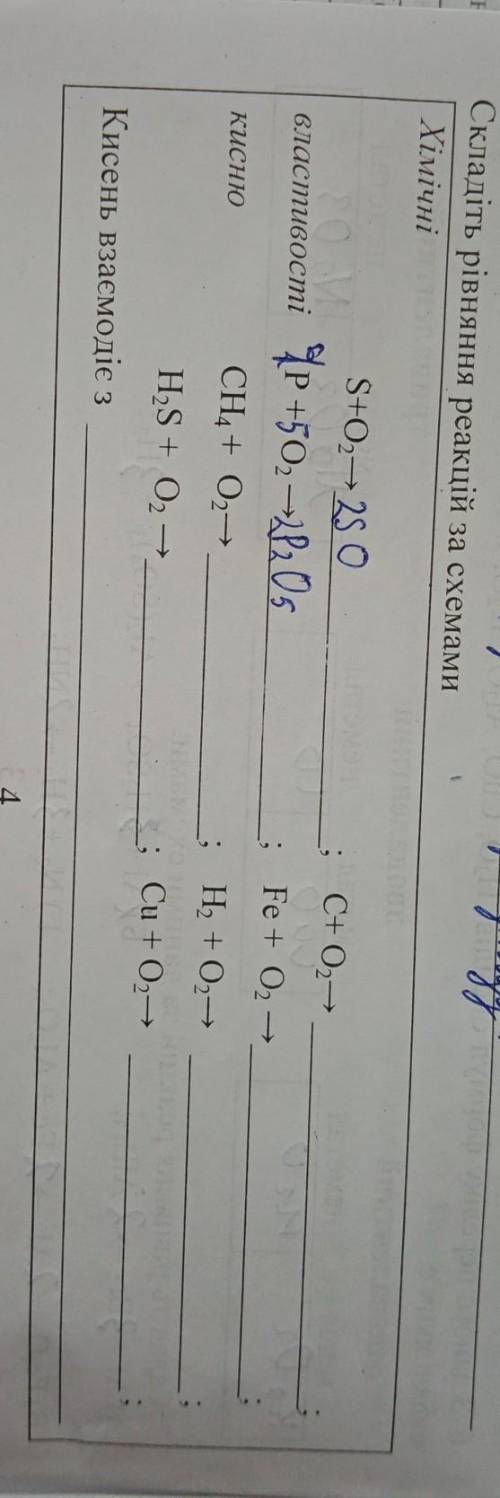 Складіть рівняння реакцій за схемами
Хімічні властивості кисню
S+O₂→ 2SO ; C+ O₂→ ;
4P +5O₂ →2P₂O₅ ; Fe + O₂ → ;
CH₄ + O₂→ ; H₂ + O₂→ ;
H₂S + O₂ → ; Cu + O₂→ ;
Кисень взаємодіє з
4